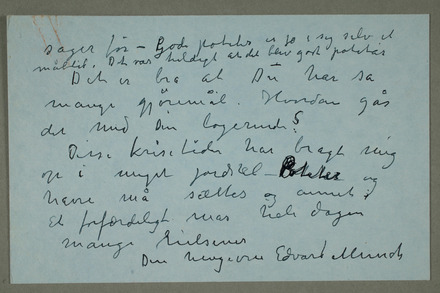 sager før – Gode poteter er jo i sig selv et
måltid. Det var heldigt at det blev godt potetår
Det er bra at Du har så
mange gjøremål. Hvordan gås
det med Din logerende?
Disse krisetider har bragt mig
op i meget jordstel – Poteter og
havre må sættes og annet i
Et forfærdeligt mas hele dagen
mange hilsener
Din hengivne Edvard Munch